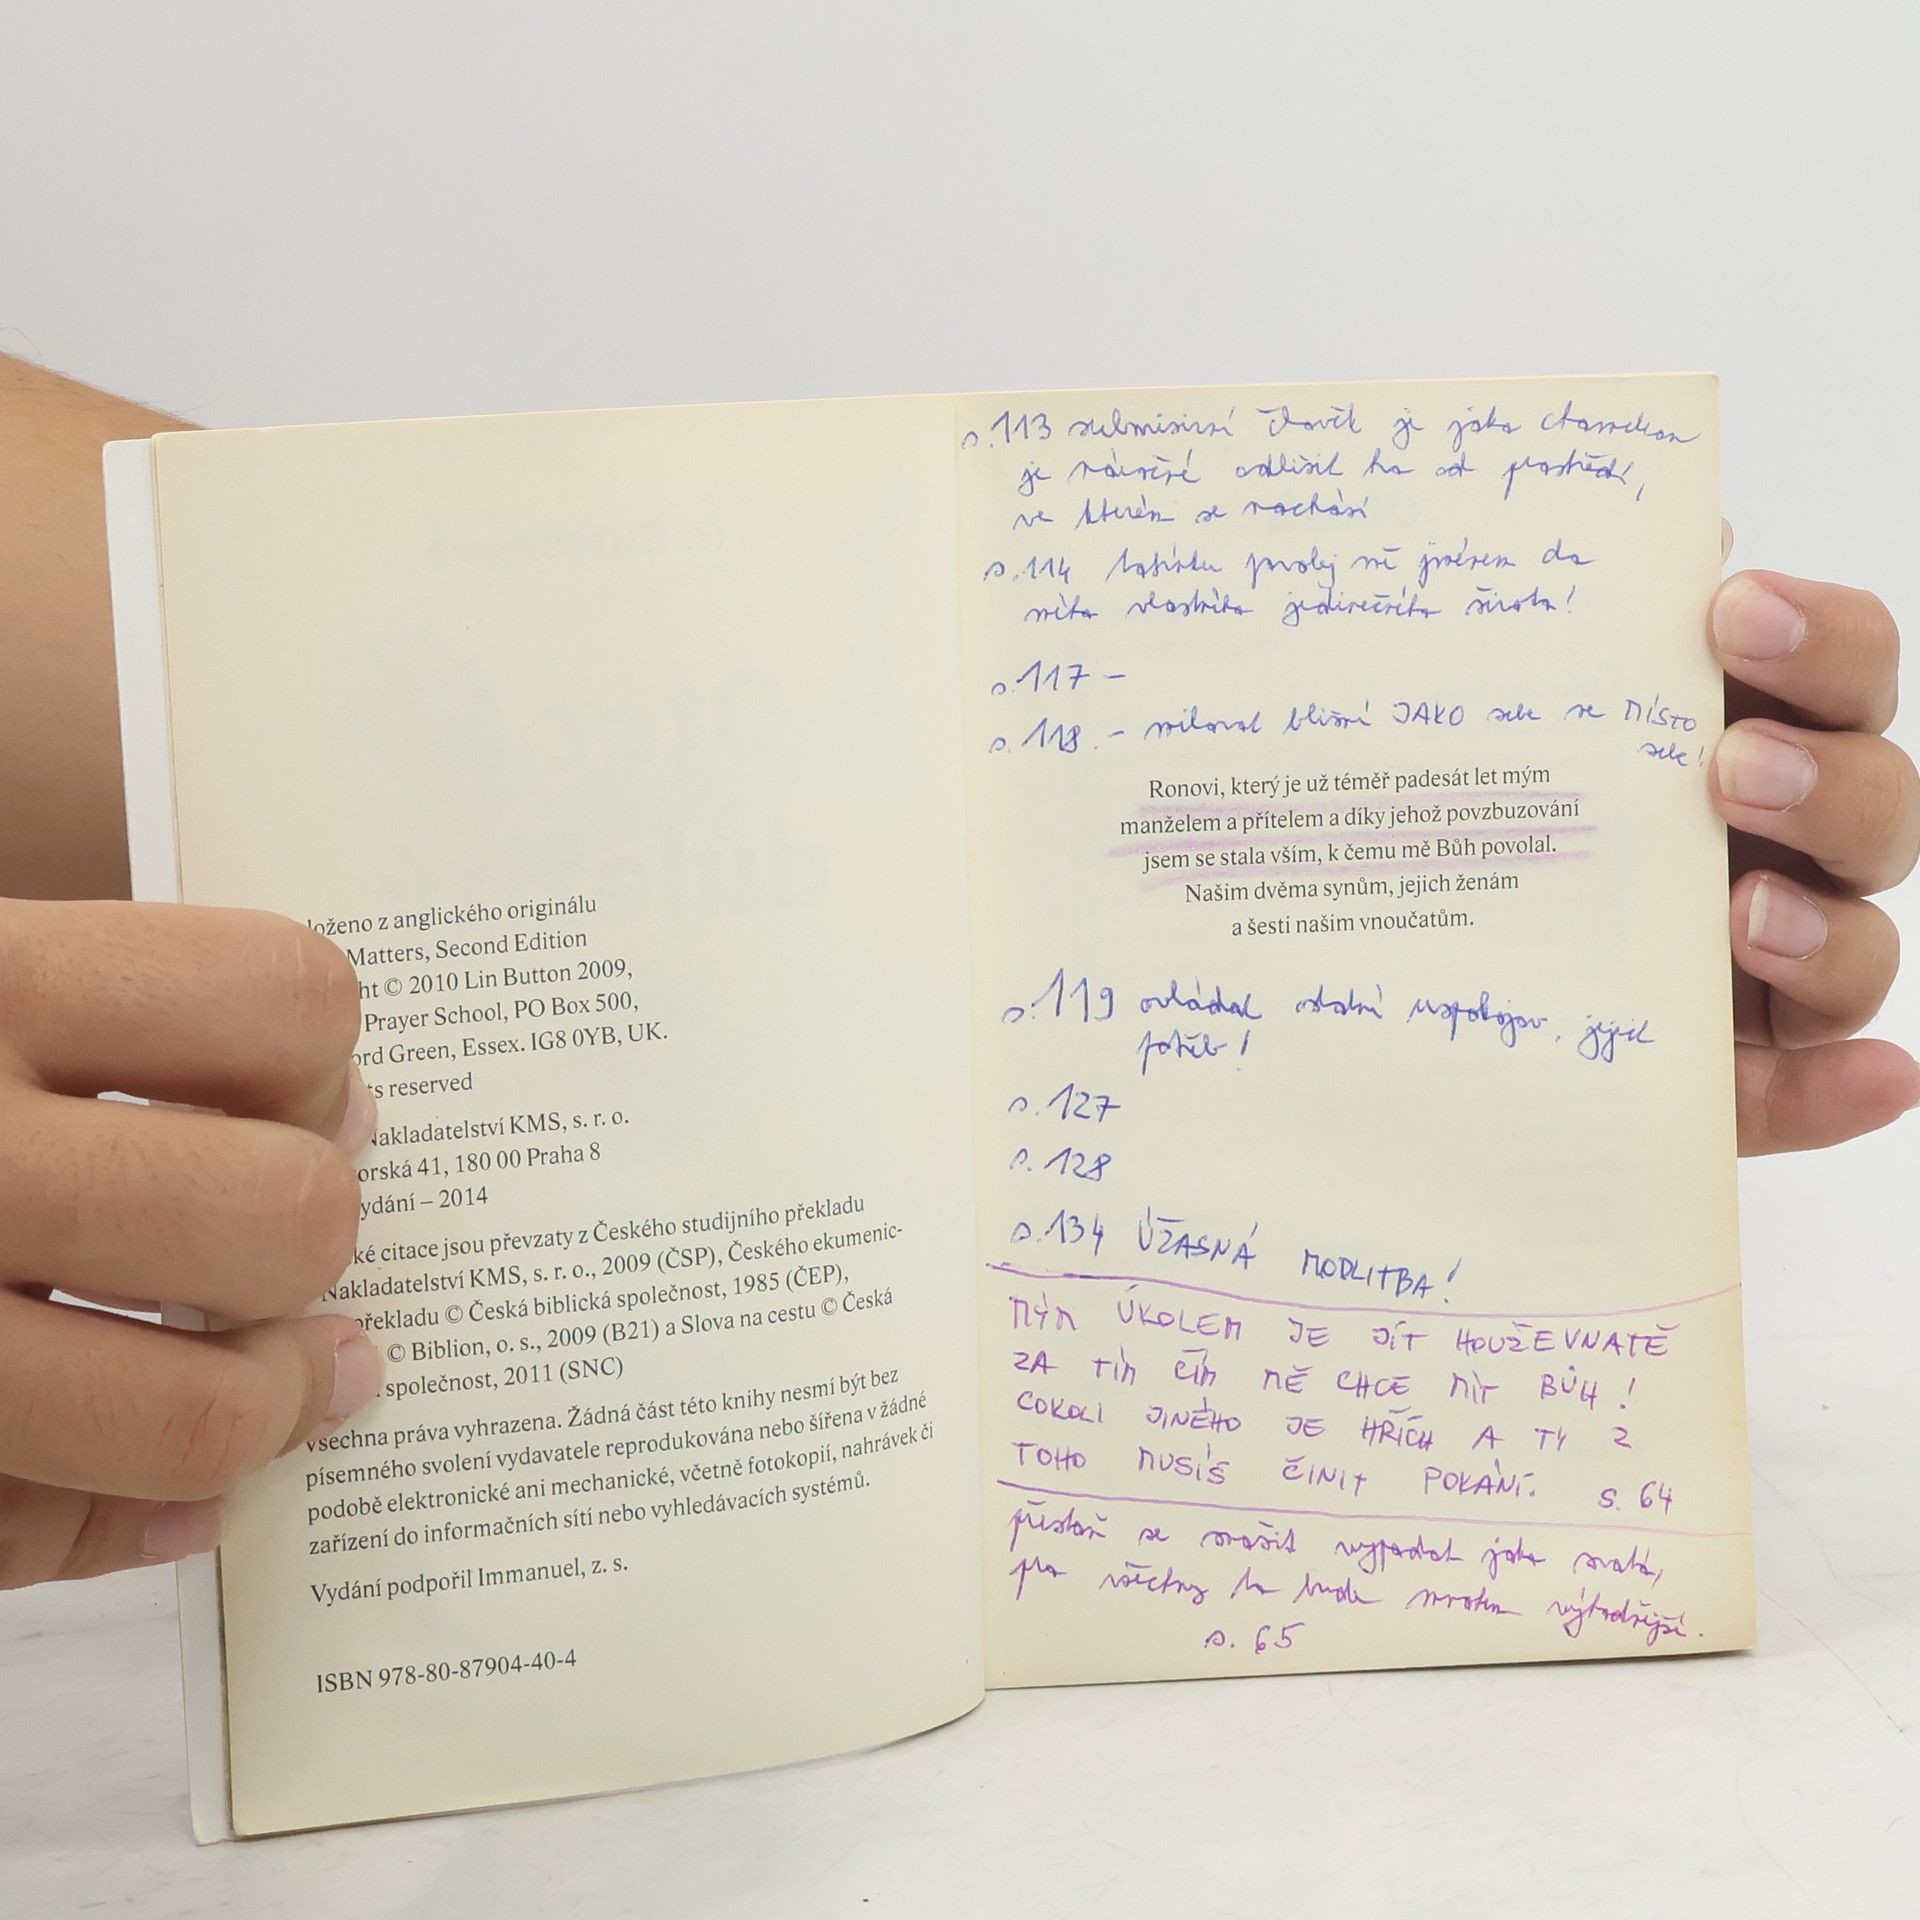 loženo z anglického originálu
Matters, Second Edition
ht © 2010 Lin Button 2009,
Prayer School, PO Box 500,
ord Green, Essex. IG8 0YB, UK.
ts reserved
Nakladatelství KMS, s. r. o.
orská 41, 180 00 Praha 8
ydání – 2014
ké citace jsou převzaty z Českého studijního překladu
Nakladatelství KMS, s. r. o., 2009 (ČSP), Českého ekumenic-
překladu © Česká biblická společnost, 1985 (ČEP),
© Biblion, o. s., 2009 (B21) a Slova na cestu © Česká
společnost, 2011 (SNC)
Všechna práva vyhrazena. Žádná část této knihy nesmí být bez
písemného svolení vydavatele reprodukována nebo šířena v žádné
podobě elektronické ani mechanické, včetně fotokopií, nahrávek či
zařízení do informačních sítí nebo vyhledávacích systémů.
Vydání podpořil Immanuel, z. s.
ISBN 978-80-87904-40-4
s. 113 submisivní člověk je jako chameleon
je náročné odlišit ho od prostředí,
ve kterém se nachází
s. 114 Ježíši probuď mě jménem do
mého vlastního jedinečného života!
s. 117 –
s. 118 – milovat bližní JAKO sebe ne MÍSTO
sebe!
Ronovi, který je už téměř padesát let mým
manželem a přítelem a díky jehož povzbuzování
jsem se stala vším, k čemu mě Bůh povolal.
Našim dvěma synům, jejich ženám
a šesti našim vnoučatům.
s. 119 ovládat ostatní uspokojov. jejich
potřeb!
s. 127
s. 128
s. 134 ÚŽASNÁ MODLITBA!
MÝM ÚKOLEM JE JÍT HOUŽEVNATĚ
ZA TÍM ČÍM MĚ CHCE MÍT BŮH!
COKOLI JINÉHO JE HŘÍCH A TY Z
TOHO MUSÍŠ ČINIT POKÁNÍ. S. 64
přestaň se snažit vypadat jako svatá,
pro všechny to bude mnohem výhodnější.
s. 65